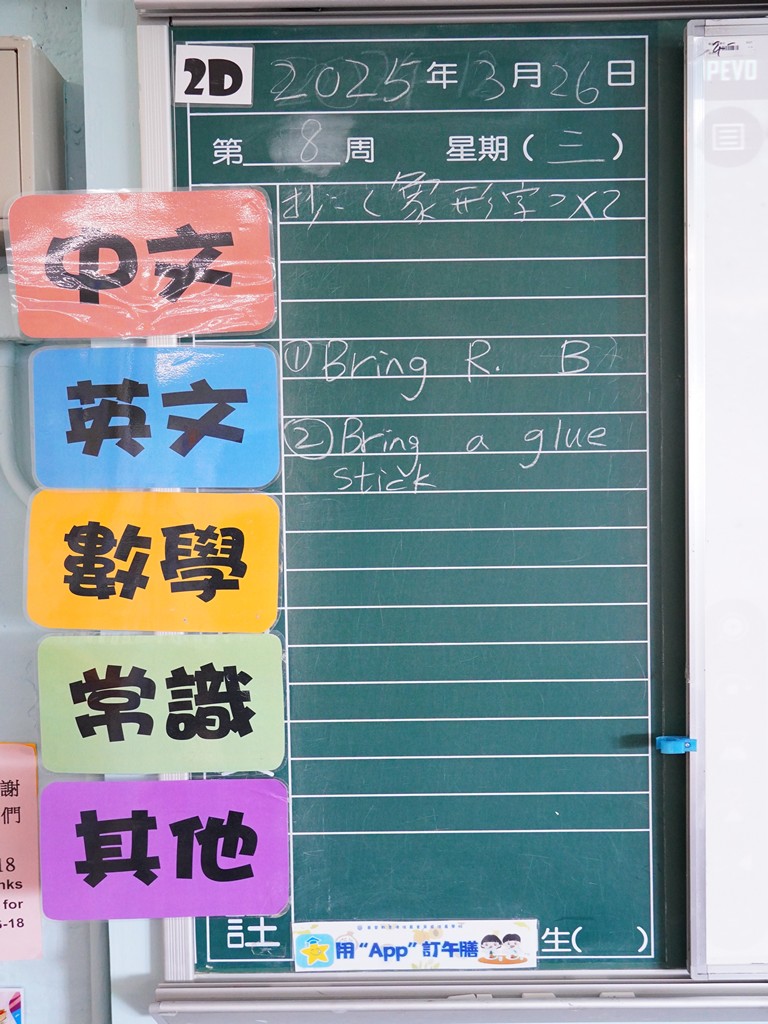 2D 2025年3月26日
第8周 星期(三)
中文
抄:<象形字>X2
英文
①Bring R. B
②Bring a glue
stick
數學
常識
其他
註
用“App”訂午膳
生( )
IPEVO
謝
們
18
nks
for
-18